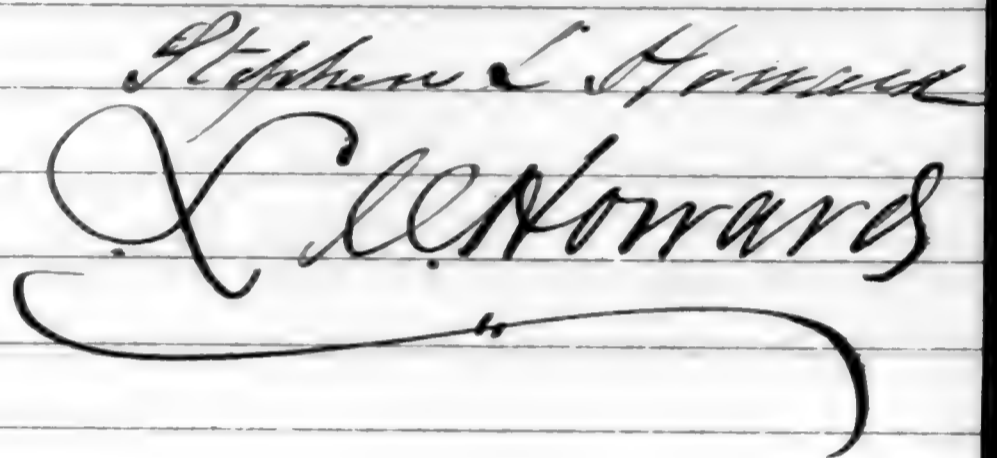 Stephen L Howard
L. C. Howard